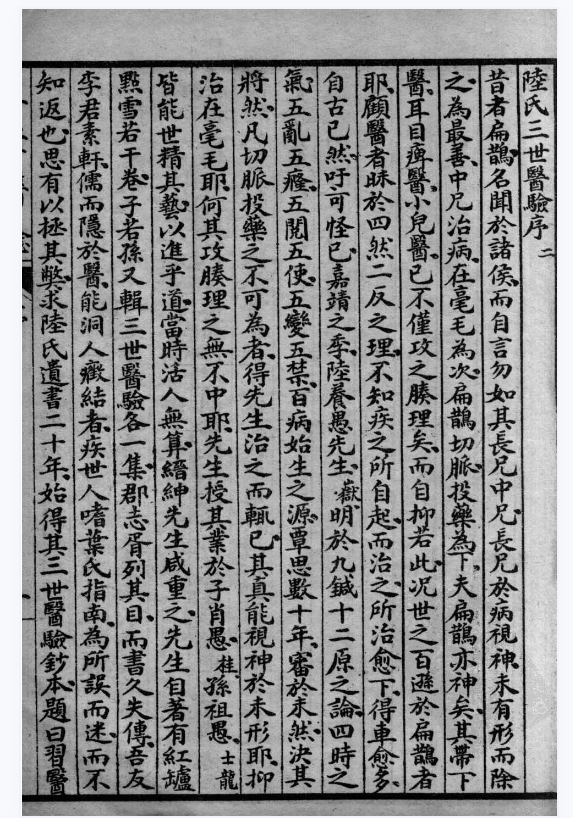 陸氏三世醫驗序 二
昔者扁鵲名聞於諸侯而自言勿如其長兄中兄長兄於病視神未有形而除
之為最善中兄治病在毫毛為次扁鵲切脈投藥為下夫扁鵲亦神矣其帶下
醫耳目痺醫小兒醫已不僅攻之腠理矣而自抑若此况世之百遜於扁鵲者
耶顧醫者昧於四然二反之理不知疾之所自起而治之所治愈下得車愈多
自古已然吁可怪已嘉靖之季陸養愚先生嶽明於九鍼十二原之論四時之
氣五亂五癃五閱五使五變五禁百病始生之源覃思數十年審於未然決其
將然凡切脈投藥之不可為者得先生治之而輒已其真能視神於未形耶抑
治在毫毛耶何其攻腠理之無不中耶先生授其業於子肖愚桂孫祖愚士龍
皆能世精其藝以進乎道當時活人無算縉紳先生咸重之先生自著有紅罏
點雪若干卷子若孫又輯三世醫驗各一集郡志胥列其目而書久失傳吾友
李君素軒儒而隱於醫能洞人癥結者疾世人嗜葉氏指南為所誤而迷而不
知返也思有以拯其弊求陸氏遺書二十年始得其三世醫驗鈔本題曰習醫